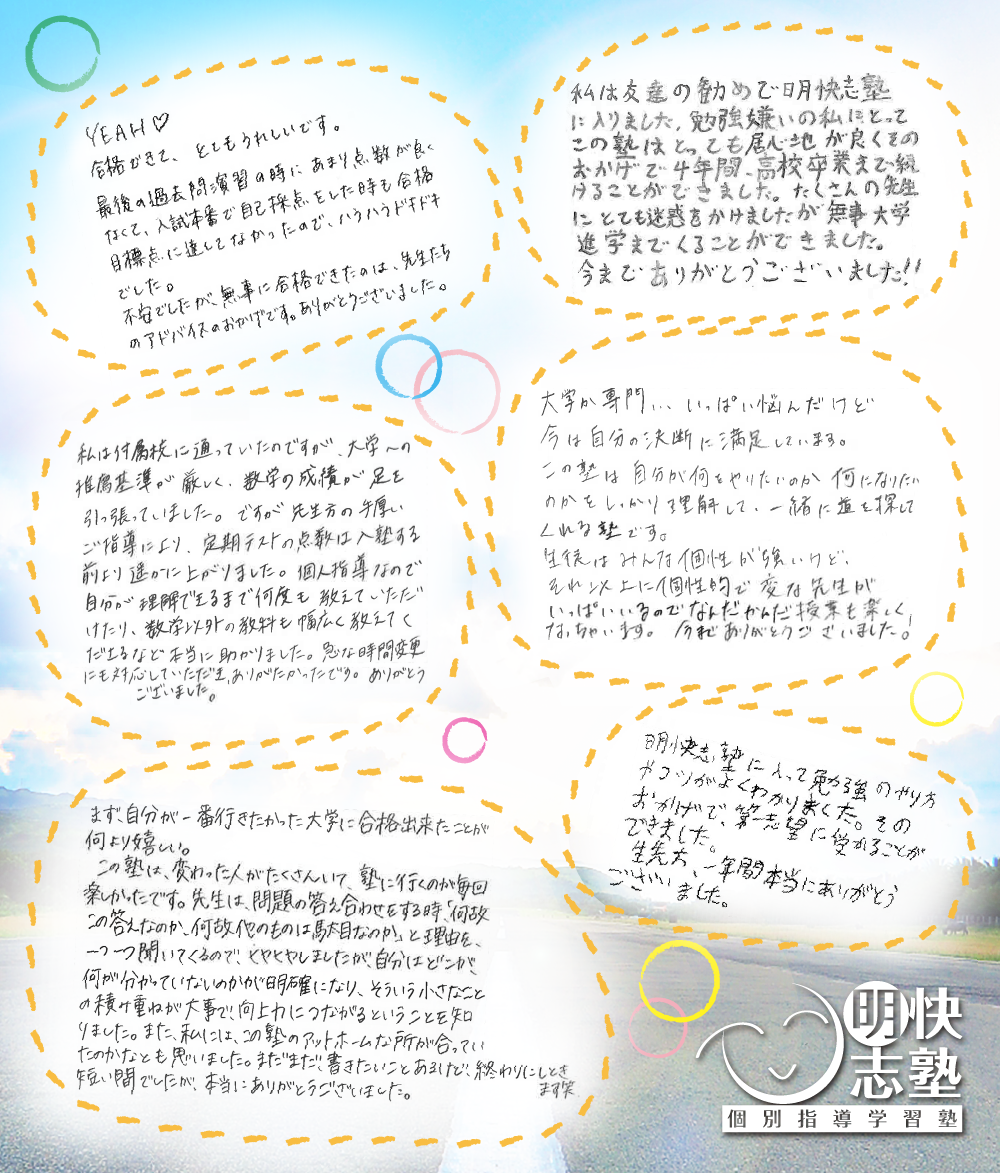 YEAH♡
合格できて、とてもうれしいです。
最後の過去問演習の時にあまり点数が良く
なくて、入試本番で自己採点をした時も合格
目標点に達してなかったので、ハラハラドキドキ
でした。
不安でしたが、無事に合格できたのは、先生たち
のアドバイスのおかげです。ありがとうございました。
私は友達の勧めで明快志塾
に入りました。勉強嫌いの私にとって
この塾はとっても居心地が良くその
おかげで4年間、高校卒業まで続
けることができました。たくさんの先生
にとても迷惑をかけましたが無事大学
進学までくることができました。
今までありがとうございました!!
私は付属校に通っていたのですが、大学への
推薦基準が厳しく、数学の成績が足を
引っ張っていました。ですが先生方の手厚い
ご指導により、定期テストの点数は入塾する
前より遥かに上がりました。個人指導なので
自分が理解できるまで何度も教えていただ
けたり、数学以外の教科も幅広く教えてく
ださるなど本当に助かりました。急な時間変更
にも対応していただき、ありがたかったです。ありがとう
ございました。
大学か専門... いっぱい悩んだけど
今は自分の決断に満足しています。
この塾は自分が何をやりたいのか何になりたい
のかをしっかり理解して、一緒に道を探して
くれる塾です。
生徒はみんな個性が強いけど、
それ以上に個性的で変な先生が
いっぱいいるのでなんだかんだ授業も楽しく
なっちゃいます。今までありがとうございました!
まず、自分が一番行きたかった大学に合格出来たことが
何より嬉しい。
この塾は、変わった人がたくさんいて、塾に行くのが毎回
楽しかったです。先生は、問題の答え合わせをする時、「何故
この答えなのか、何故他のものは駄目なのか」と理由を、
一つ一つ聞いてくるので、ヒヤヒヤしましたが、自分はどこが、
何が分かっていないのかが明確になり、そういう小さなこと
の積み重ねが大事で、向上力につながるということを知
りました。また、私には、この塾のアットホームな所が合ってい
たのかなとも思いました。まだまだ、書きたいことあるけど、終わりにしとき
ます笑
短い間でしたが、本当にありがとうございました。
明快志塾に入って勉強のやり方
やコツがよくわかりました。その
おかげで、第一志望に受かることが
できました。
先生方、一年間本当にありがとう
ございました。
明快
志塾
個別指導学習塾